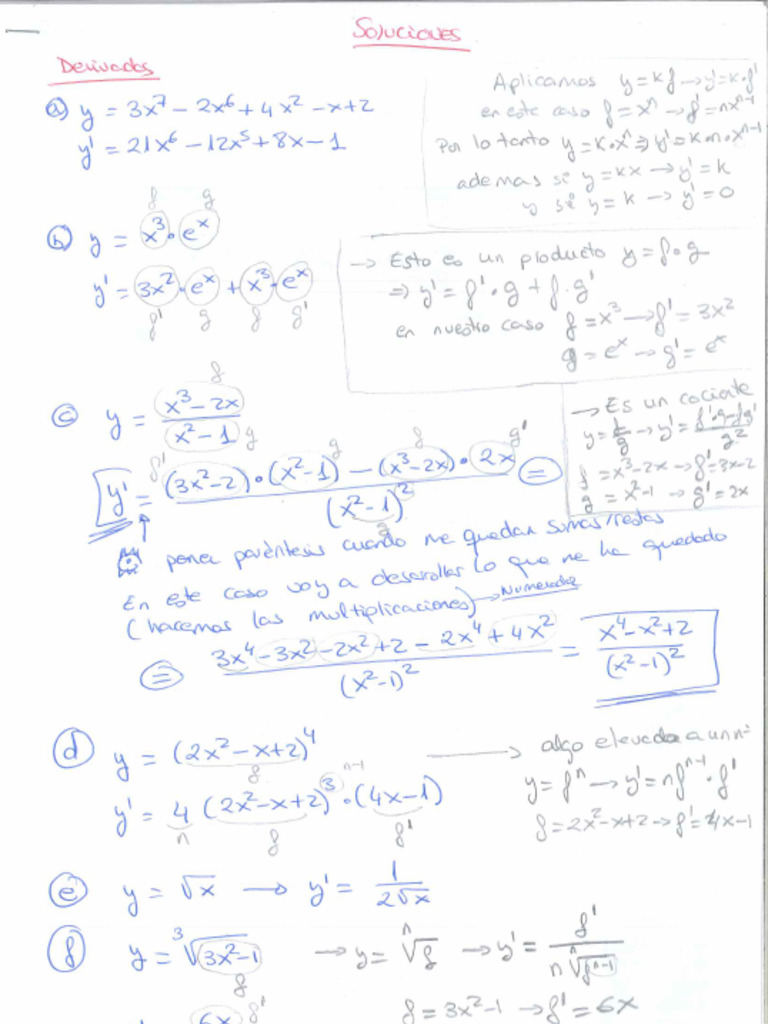 Soluciones
Derivadas
a) y = 3x⁷ − 2x⁶ + 4x² − x + 2
y' = 21x⁶ − 12x⁵ + 8x − 1
Aplicamos y = k f → y' = k · f'
en este caso f = xⁿ → f' = nxⁿ⁻¹
Por lo tanto y = k · xⁿ ⇒ y' = k · n · xⁿ⁻¹
ademas si y = kx → y' = k
y si y = k → y' = 0
f g
b) y = x³ · eˣ
y' = 3x² · eˣ + x³ · eˣ
f' g f g'
→ Esto es un producto y = f · g
⇒ y' = f' · g + f · g'
en nuestro caso f = x³ → f' = 3x²
g = eˣ → g' = eˣ
f
c) y = (x³ − 2x) / (x² − 1)
g
→ Es un cociente
y = f/g → y' = (f'·g − f g') / g²
f = x³ − 2x → f' = 3x − 2
g = x² − 1 → g' = 2x
f' g f g'
y' = ((3x² − 2) · (x² − 1) − (x³ − 2x) · 2x) / (x² − 1)² =
g
poner paréntesis cuando me quedan sumas/restas
En este caso voy a desarrollar lo que me ha quedado
(hacemos las multiplicaciones) → Numerador
= (3x⁴ − 3x² − 2x² + 2 − 2x⁴ + 4x²) / (x² − 1)² = (x⁴ − x² + 2) / (x² − 1)²
d) y = (2x² − x + 2)⁴
f
y' = 4 (2x² − x + 2)³ · (4x − 1)
n f n−1 f'
→ algo elevado a un nº
y = fⁿ → y' = n fⁿ⁻¹ · f'
f = 2x² − x + 2 → f' = 4x − 1
e) y = √x → y' = 1 / (2√x)
f) y = ³√(3x² − 1) → y = ⁿ√f → y' = f' / (n ⁿ√(fⁿ⁻¹))
f
f = 3x² − 1 → f' = 6x
6x f'